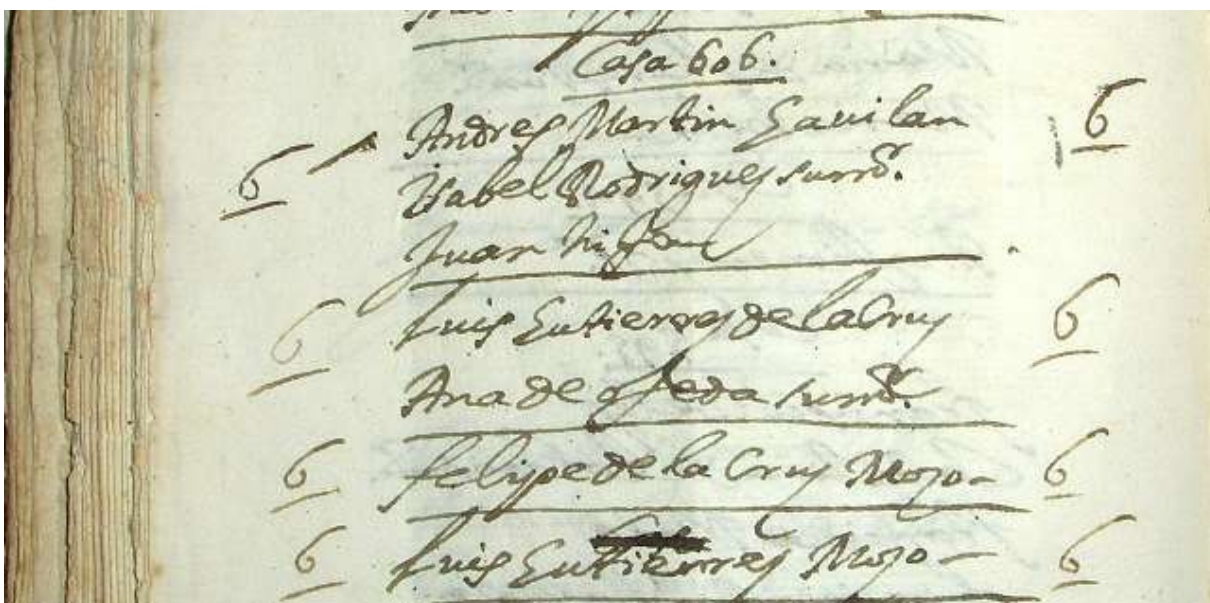 Casa 606.
6 Andres Martin Gavilan 6
Ysabel Rodriguez su mr.
Juan hijo
6 Luis Gutierrez de la Cruz 6
Ana de ojeda su mr.
6 felipe de la Cruz Mozo 6
6 Luis Gutierrez Mozo 6